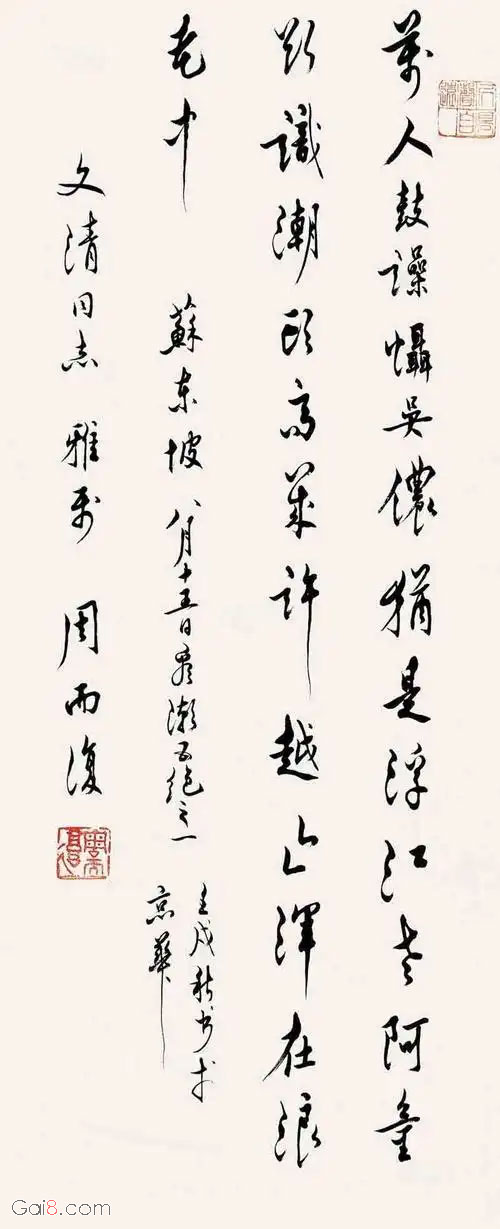 萬人鼓譟懾吳儂猶是浮江老阿童
欲識潮頭高幾許越山渾在浪
花中 蘇東坡八月十五日看潮五絕之一
壬戌秋書於
京華
文清同志 雅 周而復
Gai8.com